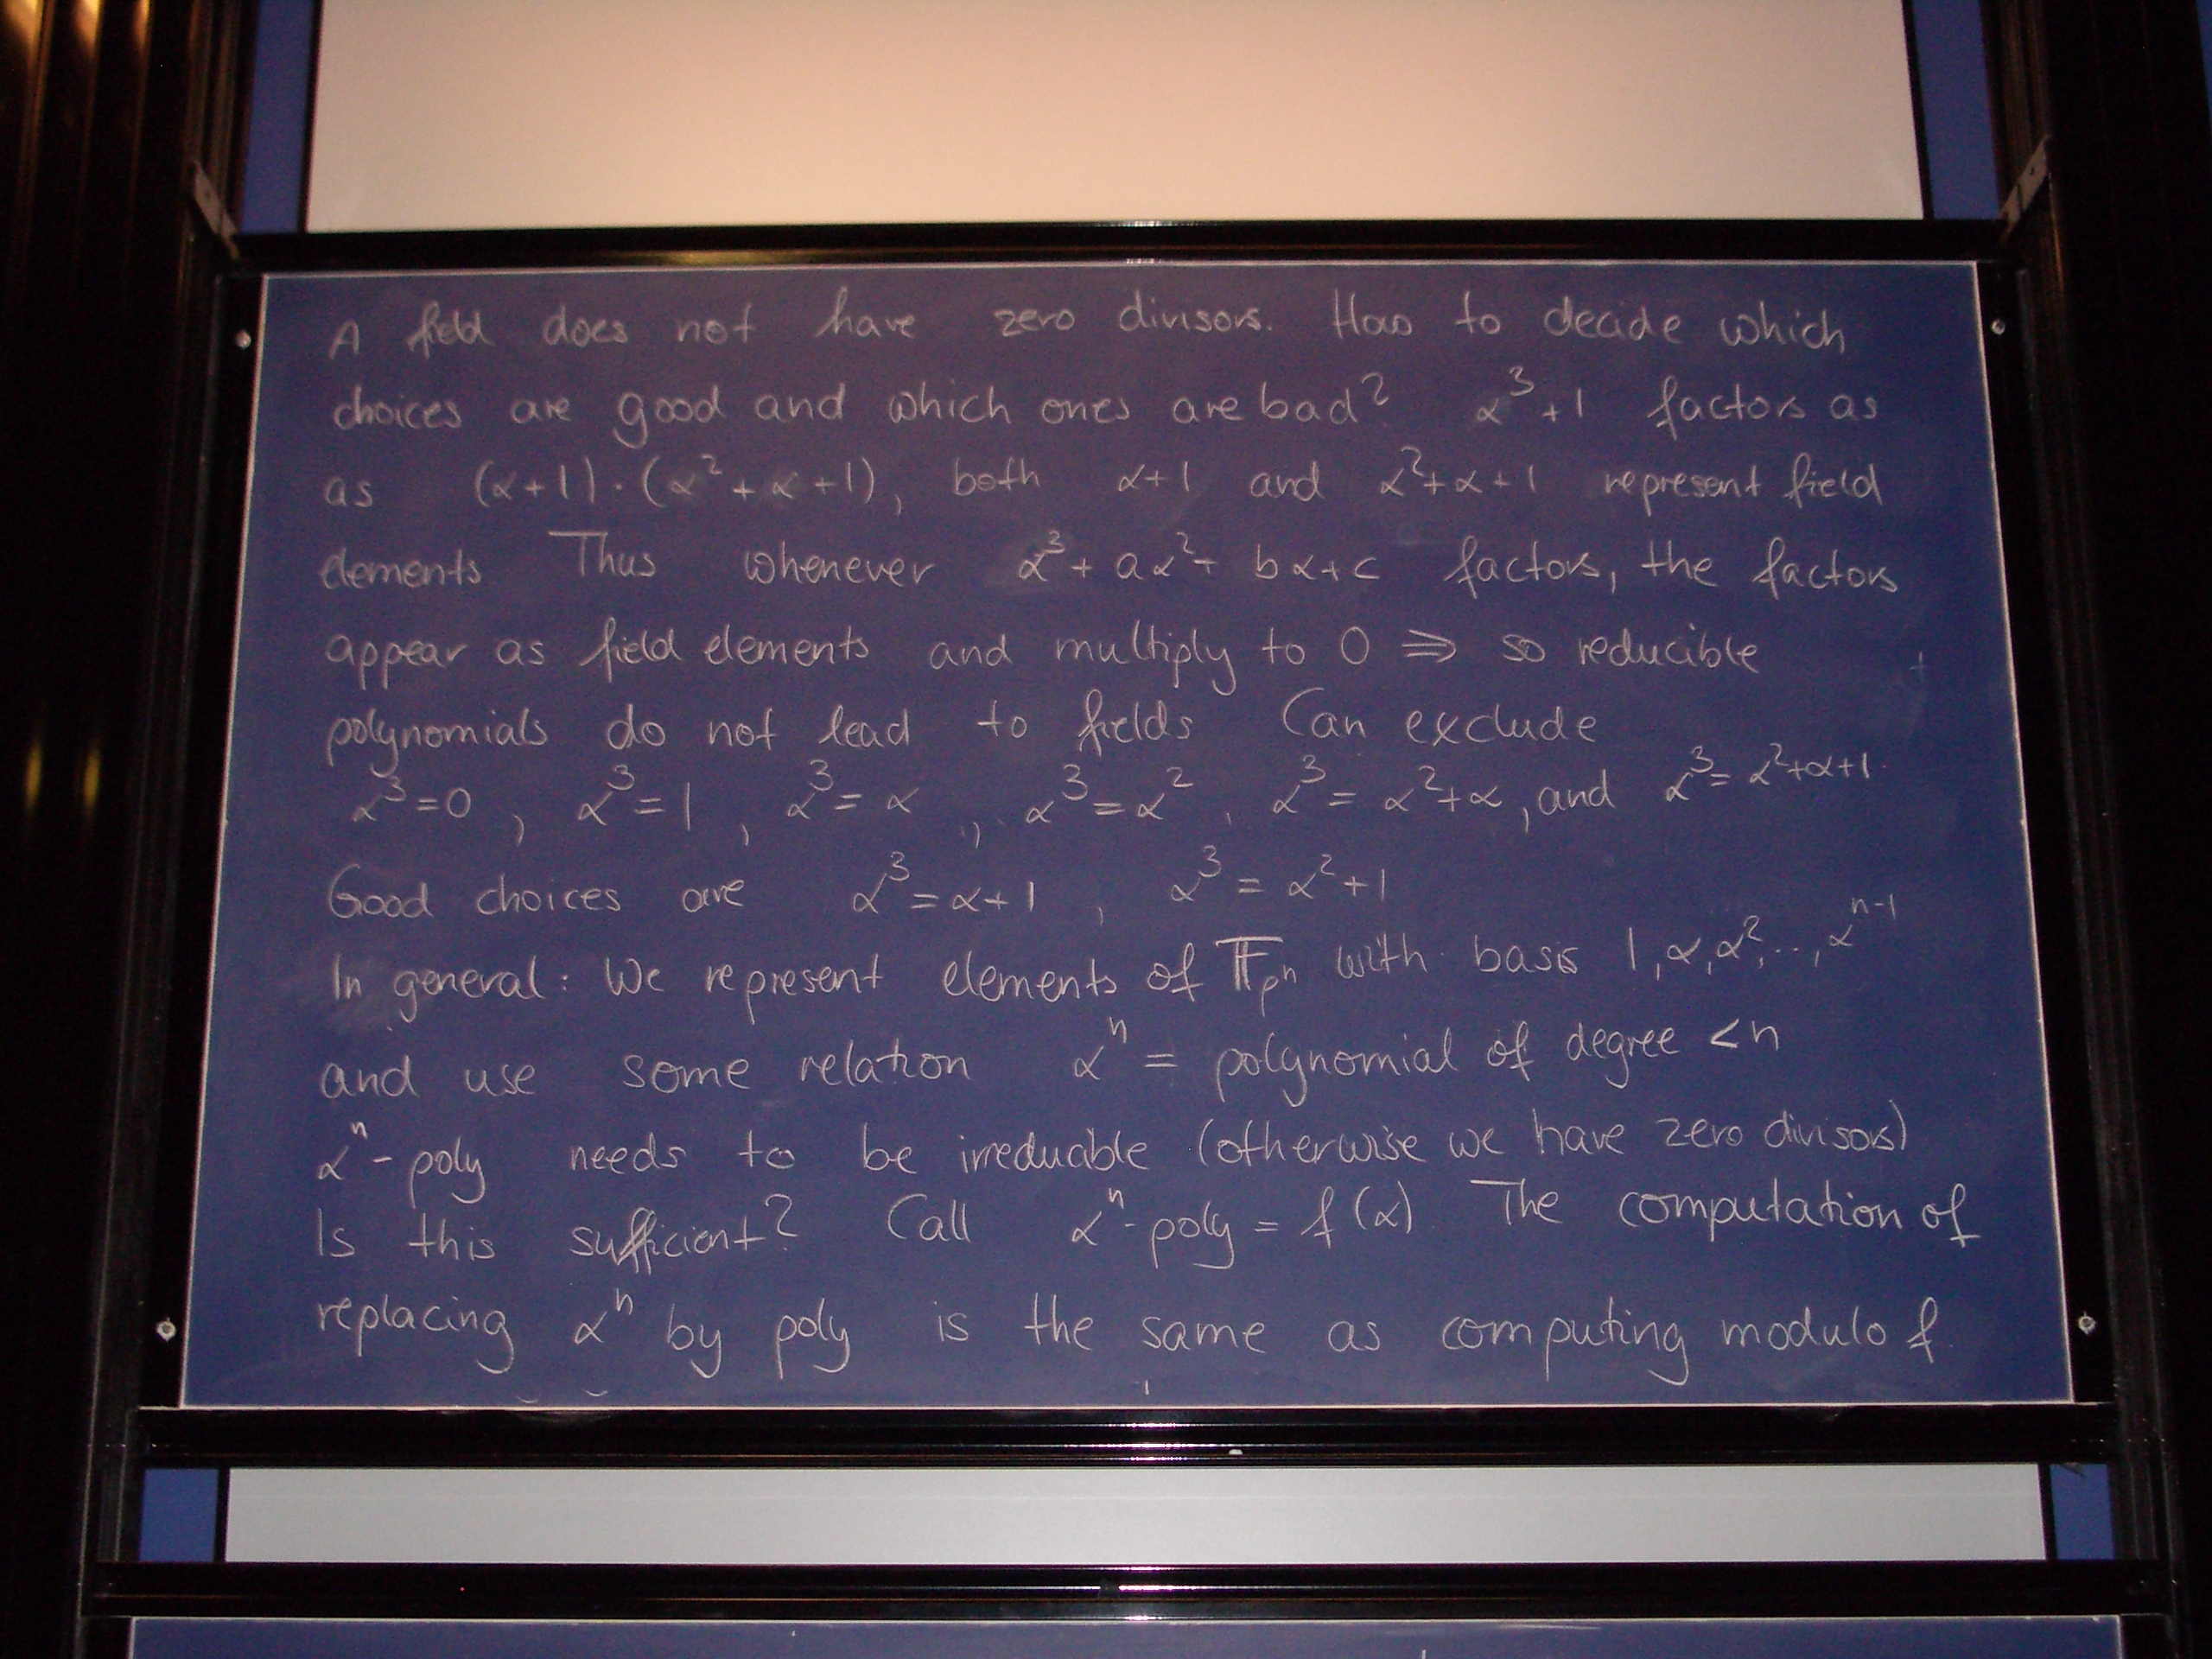 A field does not have zero divisors. How to decide which
choices are good and which ones are bad? α³+1 factors as
as (α+1)·(α²+α+1), both α+1 and α²+α+1 represent field
elements Thus whenever α³+aα²+bα+c factors, the factors
appear as field elements and multiply to 0 ⇒ so reducible
polynomials do not lead to fields Can exclude
α³=0, α³=1, α³=α, α³=α², α³=α²+α, and α³=α²+α+1.
Good choices are α³=α+1, α³=α²+1
In general: We represent elements of 𝔽_pⁿ with basis 1,α,α²,...,αⁿ⁻¹
and use some relation αⁿ = polynomial of degree <n
αⁿ-poly needs to be irreducible (otherwise we have zero divisors)
Is this sufficient? Call αⁿ-poly = f(α) The computation of
replacing αⁿ by poly is the same as computing modulo f